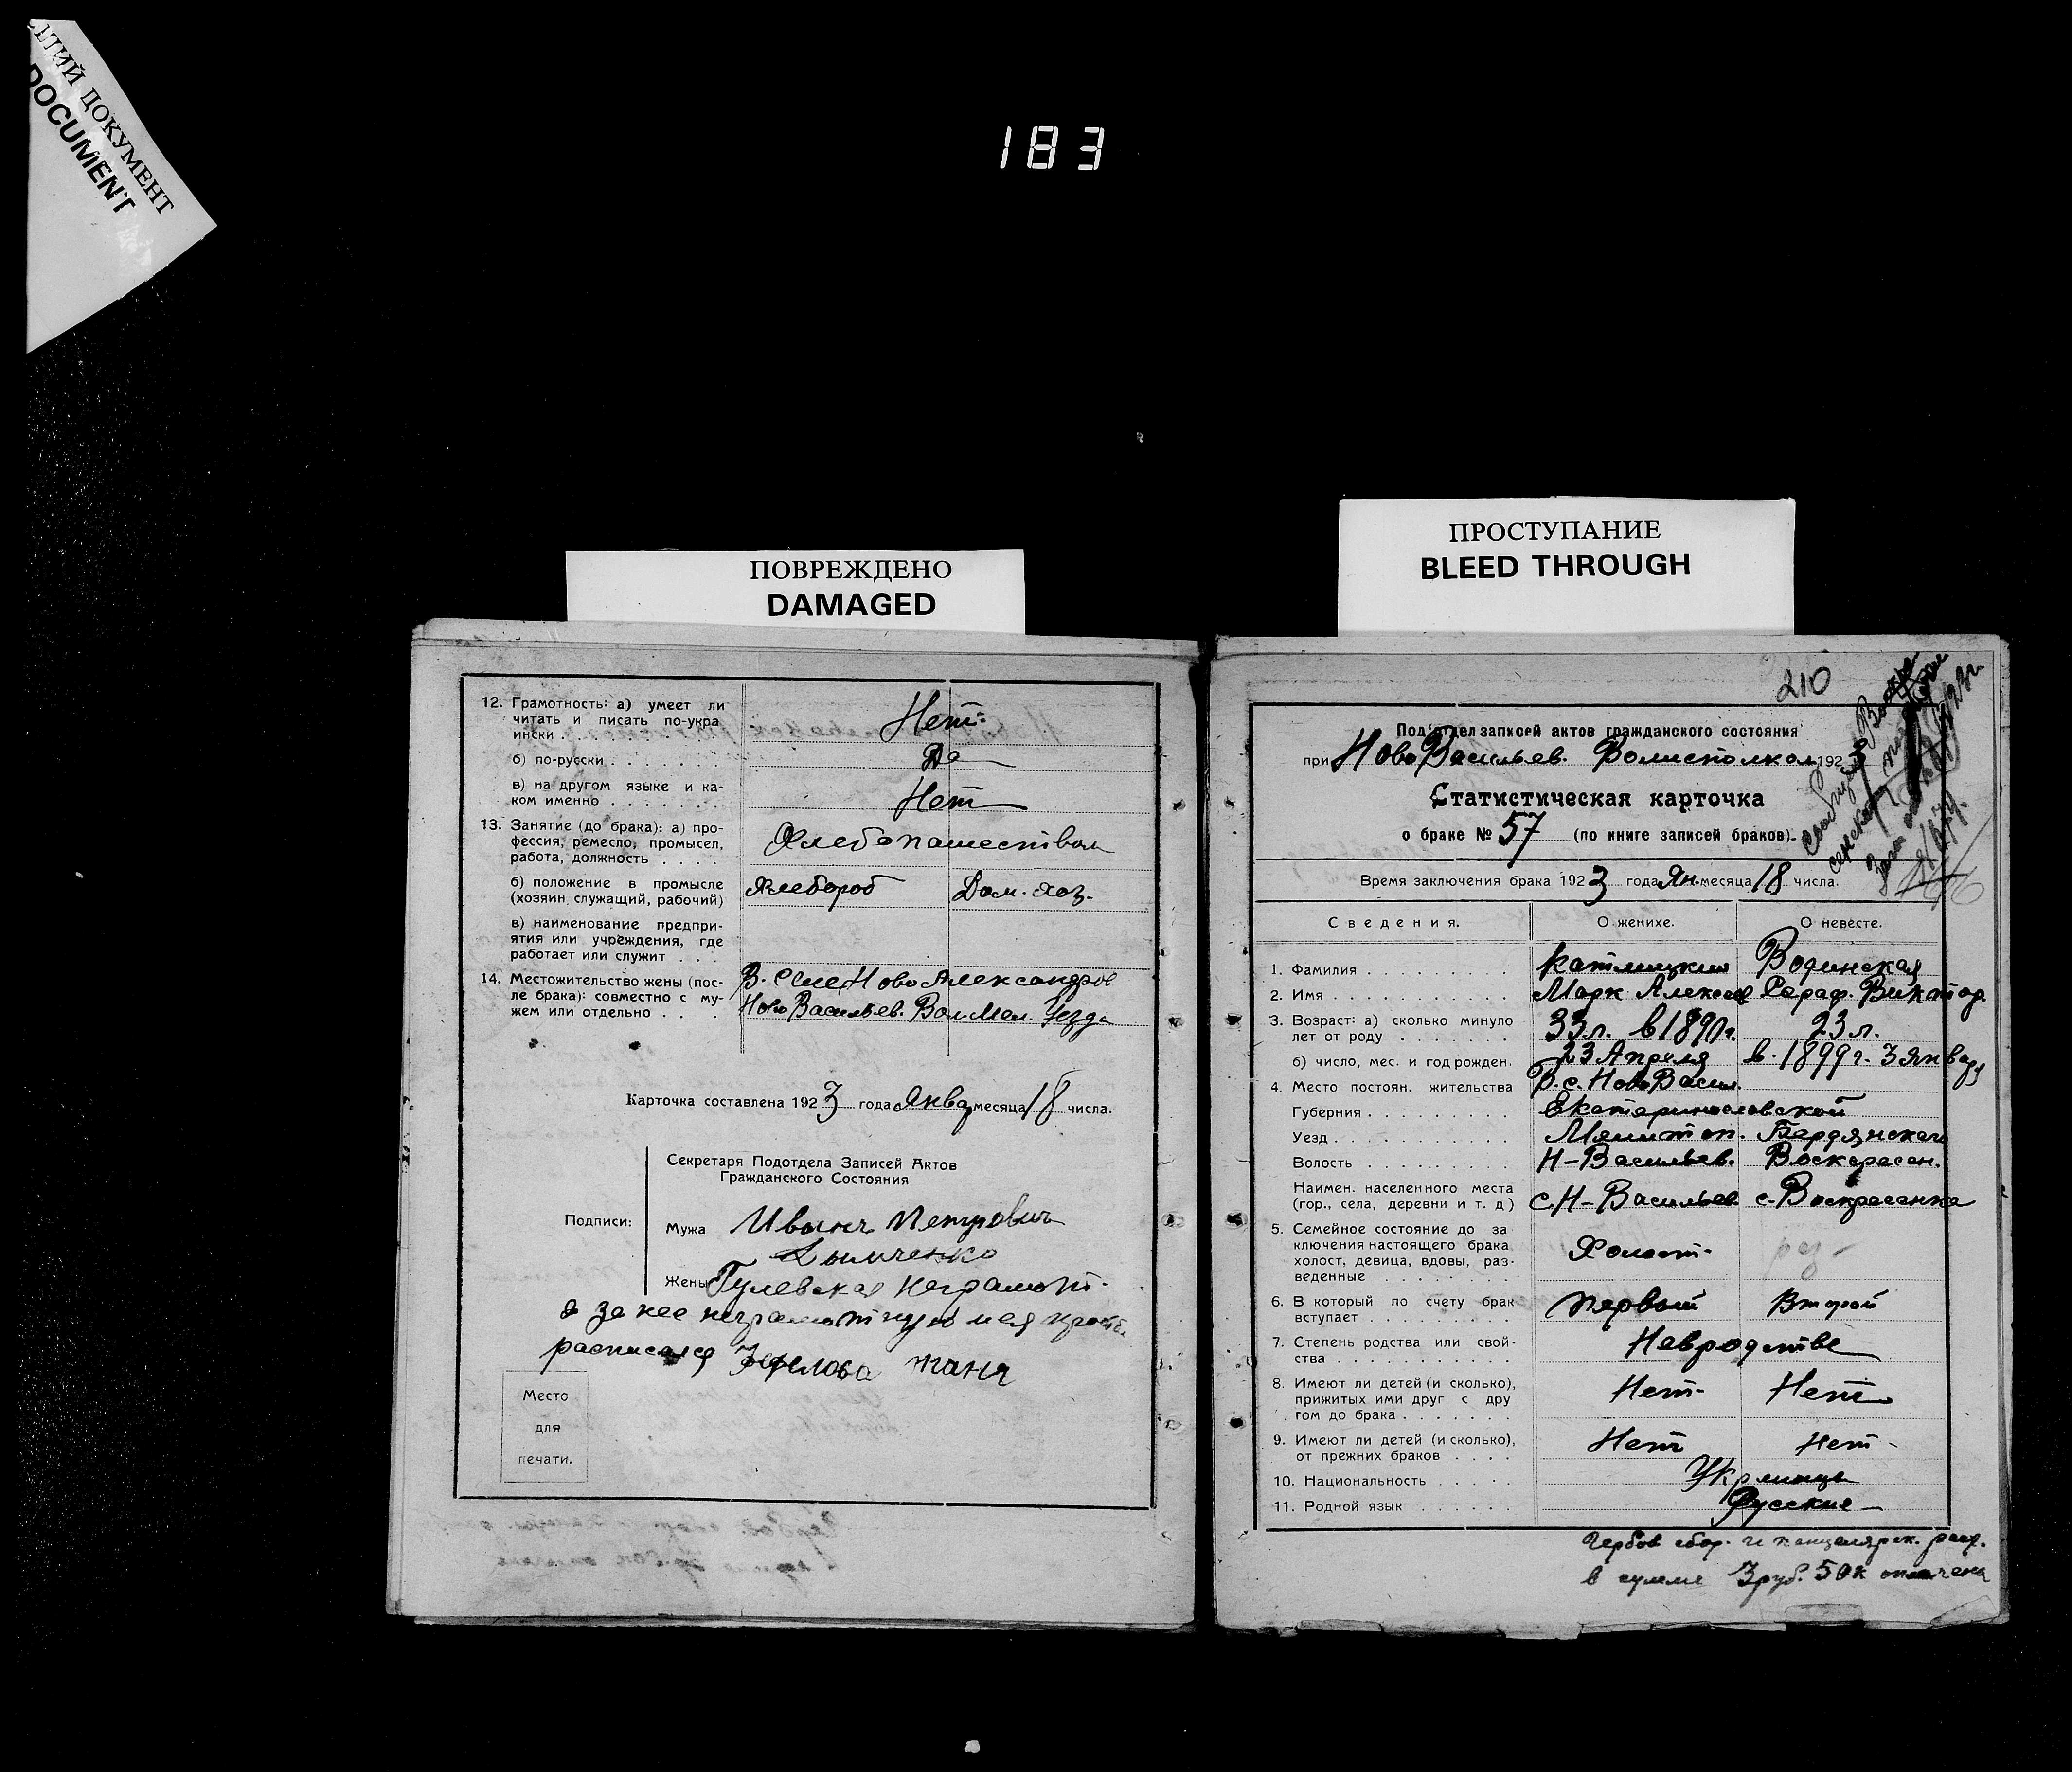 ДОКУМЕНТ
DOCUMENT
183
ПОВРЕЖДЕНО
DAMAGED
12. Грамотность: а) умеет ли
читать и писать по-укра
ински . . . Нет
б) по-русски . . . . . . . Да
в) на другом языке и ка-
ком именно . . . . . . . Нет
13. Занятие (до брака): а) про-
фессия, ремесло, промысел, Хлебопашеством
работа, должность . . . .
б) положение в промысле Хлебороб Дом. хоз.
(хозяин, служащий, рабочий)
в) наименование предпри-
ятия или учреждения, где
работает или служит . . .
14. Местожительство жены (пос- В. Селе Ново Александров
ле брака): совместно с му-
жем или отдельно . . . . Ново Васильев. Вол. Мел. Уезда
Карточка составлена 1923 года Янва месяца 18 числа.
Секретаря Подотдела Записей Актов
Гражданского Состояния
Подписи:
Мужа Иванъ Петровичъ
Дымченко
Жены Гулевская неграмот-
а за нее неграмотную
расписался
Место
для
печати.
ПРОСТУПАНИЕ
BLEED THROUGH
210
Подотдел записей актов гражданского состояния
при Ново Васильев. Волисполком 1923
Статистическая карточка
о браке № 57 (по книге записей браков).
Время заключения брака 1923 года Ян. месяца 18 числа.
Сведения. О женихе. О невесте.
1. Фамилия . . . . . . . . Водинская
2. Имя . . . . . . . . . . . Марк Алексеев Сераф. Виктор.
3. Возраст: а) сколько минуло
лет от роду . . . . . . . 33 л. в 1890 г. 23 л.
б) число, мес. и год рожден. 23 Апреля в. 1899 г. 3 января
4. Место постоян. жительства В. с. Ново Васил.
Губерния . . . . . . . . . Екатеринославской
Уезд . . . . . . . . . . . Мелитоп. Бердянского
Волость . . . . . . . . . Н-Васильев. Воскресен.
Наимен. населенного места
(гор., села, деревни и т. д) с. Н-Васильев. с. Воскресенка
5. Семейное состояние до за
ключения настоящего брака Холост- раз-
холост, девица, вдовы, раз-
веденные . . . . . . . .
6. В который по счету брак Первый Второй
вступает . . . . . . . . .
7. Степень родства или свой- Невродстве
ства . . . . . . . . . . .
8. Имеют ли детей (и сколько),
прижитых ими друг с дру Нет- Нет
гом до брака . . . . . . .
9. Имеют ли детей (и сколько), Нет Нет-
от прежних браков . . . .
10. Национальность . . . . .
11. Родной язык . . . . . . Русские
Гербов сбор. и канцелярск. расх.
в сумме 3 руб. 50 к оплачена